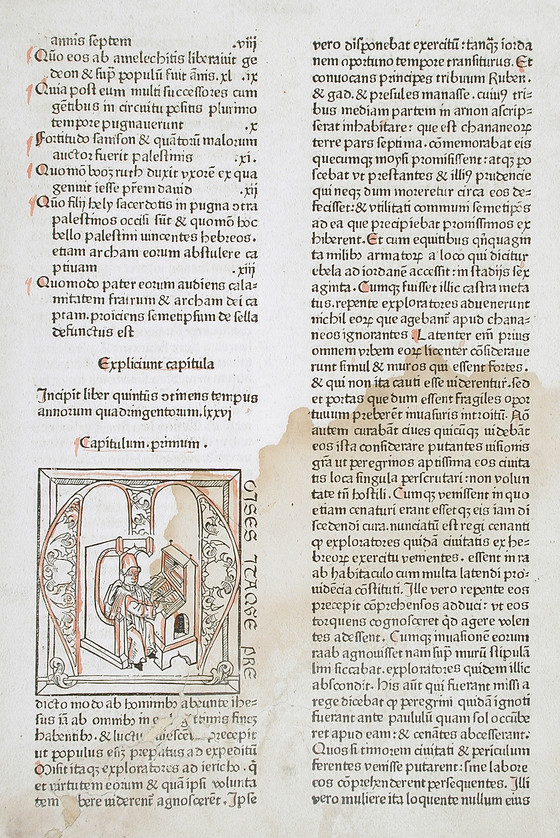 annis septem .viii
Quo eos ab amelechitis liberauit ge
deon & sup populū fuit ānis.xl .ix
Quia post eum multi successores cum
gētibus in circuitu positis plurimo
tempore pugnauerunt .x
Fortitudo samson & quātorū malorum
auctor fuerit palestinis .xi.
Quomō booz ruth duxit vxorē ex qua
genuit iesse prēm dauid .xii
Quo filij hely sacerdotis in pugna ↄtra
palestinos occisi sūt & quomō hoc
bello palestini uincentes hebreos.
etiam archam eorum abstulere ca
ptiuam .xiii
Quomodo pater eorum audiens cala-
mitatem fratrum & archam dei ca
ptam.proiciens semetipsum de sella
defunctus est
Expliciunt capitula
Incipit liber quintus ↄtinens tempus
annorum quadringentorum.lxxvi
Capitulum.primum.
M
OISES ITAQVE PRE
dicto modo ab hominibꝰ abeunte ihe-
sus iā ab omnibꝰ in finē
habentibꝰ.& luctu precepit
ut populus eiꝰ preparatus ad expeditū
Misit itaqꝫ exploratores ad iericho.q̄
et virtutem eorum & quā ipsi volunta
tem uiderent agnoscerēt.Ipse
vero disponebat exercitū:tanqꝫ iorda
nem oportuno tempore transiturus.Et
conuocans principes tribuum Ruben.
& gad.& presules manasse.cuiuꝰ tri-
bus mediam partem in arnon ascrip-
serat inhabitare:que est chananeoꝝ
terre pars septima.cōmemorabat eis
quecumqꝫ moysi promisissent:atqꝫ po
scebat vt prestantes & illiꝰ prudencie
qui neqꝫ dum moreretur circa eos de-
fecisset:& vtilitati communi semetipōs
ad ea que precipiebat promissimos ex
hiberent.Et cum equitibus qn̄quagin
ta milibꝰ armatoꝝ a loco qui dicitur
ebela ad iordanē accessit:in stadijs sex
aginta.Cumqꝫ fuisset illic castra meta
tus.repente exploratores aduenerunt
nichil eoꝝ que agebant apud chana-
neos ignorantes.Latenter eni prius
omnem vrbem eoꝝ licenter cōsideraue
runt simul & muros qui essent fortes.
& qui non ita cauti esse uiderentur.sed
et portas que dum essent fragiles opor
tuuum preberēt inuasuris introitū.Nō
autem curabāt ciues quicūqꝫ uidebāt
eos ista considerare putantes uisionis
grā ut peregrinos aptissima eos ciuita
tis loca singula perscrutari:non volun
tate tn̄ hostili.Cumqꝫ venissent in quo
etiam cenaturi erant essetqꝫ eis iam di
scedendi cura.nunciatū est regi cenanti
q̄ exploratores quidā ciuitatis ex he-
breoꝝ exercitu uementes.essent in ra
ab habitaculo cum multa latendi pro-
uidēcia cōstituti.Ille vero repente eos
precepit cōprehensos adduci:vt eos
torquens cognosceret qd agere volen
tes adessent.Cumqꝫ inuasionē eorum
raab agnouisset nam sup murū stipulā
lini siccabat.exploratores quidem illic
abscondit.His aūt qui fuerant missi a
rege dicebat q̄ peregrini quidā ignoti
fuerant ante paululū quam sol occūbe
ret apud eam:& cenātes abcesserant.
Quos si timorem ciuitati & periculum
ferentes venisse putarent:sine labore
eos cōprehenderent persequentes.Illi
vero muliere ita loquente nullum eius